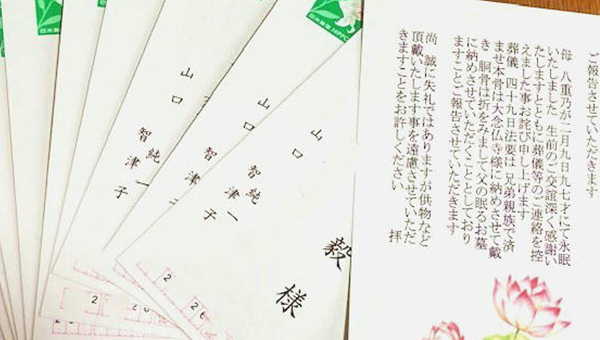 ご報告させていただきます
母 八重乃が二月九日九七才にて永眠
いたしました 生前のご交誼深く感謝い
たしますとともに葬儀等のご連絡を控
えました事お詫び申し上げます
葬儀 四十九日法要は兄弟親族で済
ませ本骨は大念仏寺様に納めさせて戴
き 胴骨は折をみまして父の眠るお墓
に納めさせていただくこととしており
ますことご報告させていただきます
尚 誠に失礼ではありますが供物など
頂戴いたします事を遠慮させていただ
きますことをお許しください
拝
毅 様
山口 純一
智津子
山口 純一
智津子
山口 純一
智津子
2 26
2 26